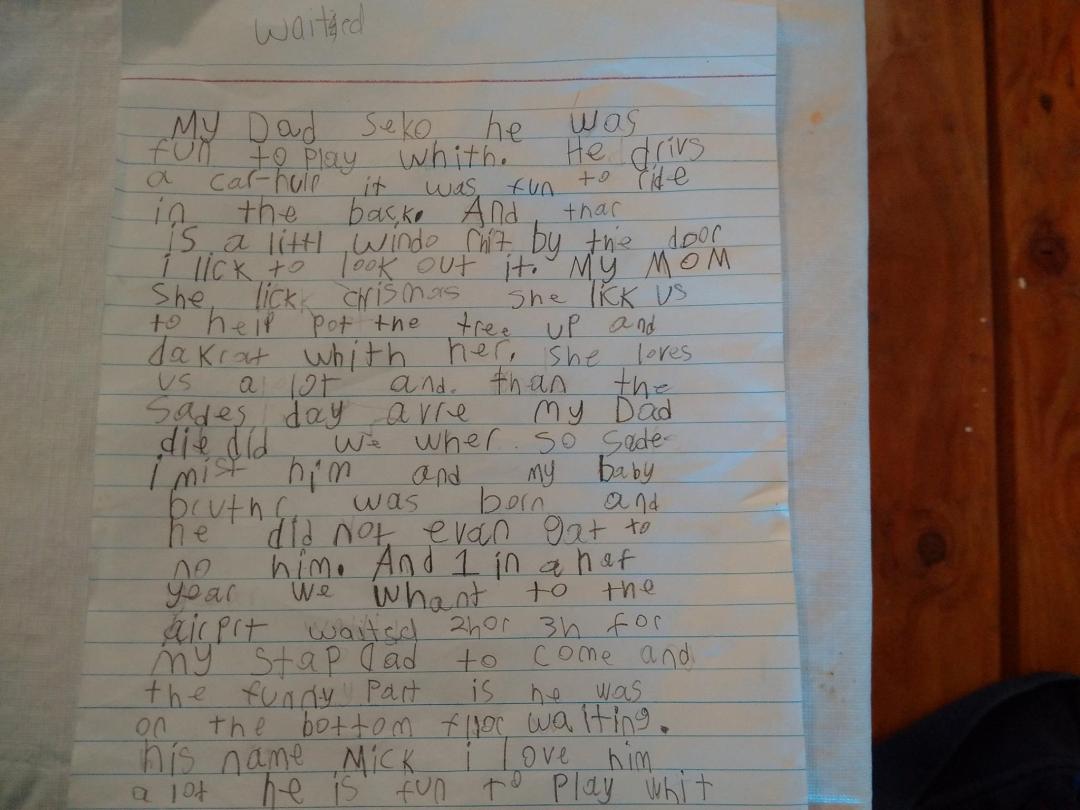 waitsed
My Dad Seko he was
fun to play whith. He drivs
a car-hulp it was fun to ride
in the back. And thar
is a littl windo rhit by the door
i lick to look out it. My MOM
She lick crismas she lick us
to help pot the tree up and
dakrat whith her. she loves
us a lot and. than the
sades day avre my Dad
die did we wher so sade
i mist him and my baby
bruthr was born and
he did not evan gat to
no him. And 1 in a haf
year we whant to the
airprt waitsd 2hor 3h for
my stap dad to come and
the funny part is he was
on the bottom flor waiting.
his name Mick i love him
a lot he is fun to play whit